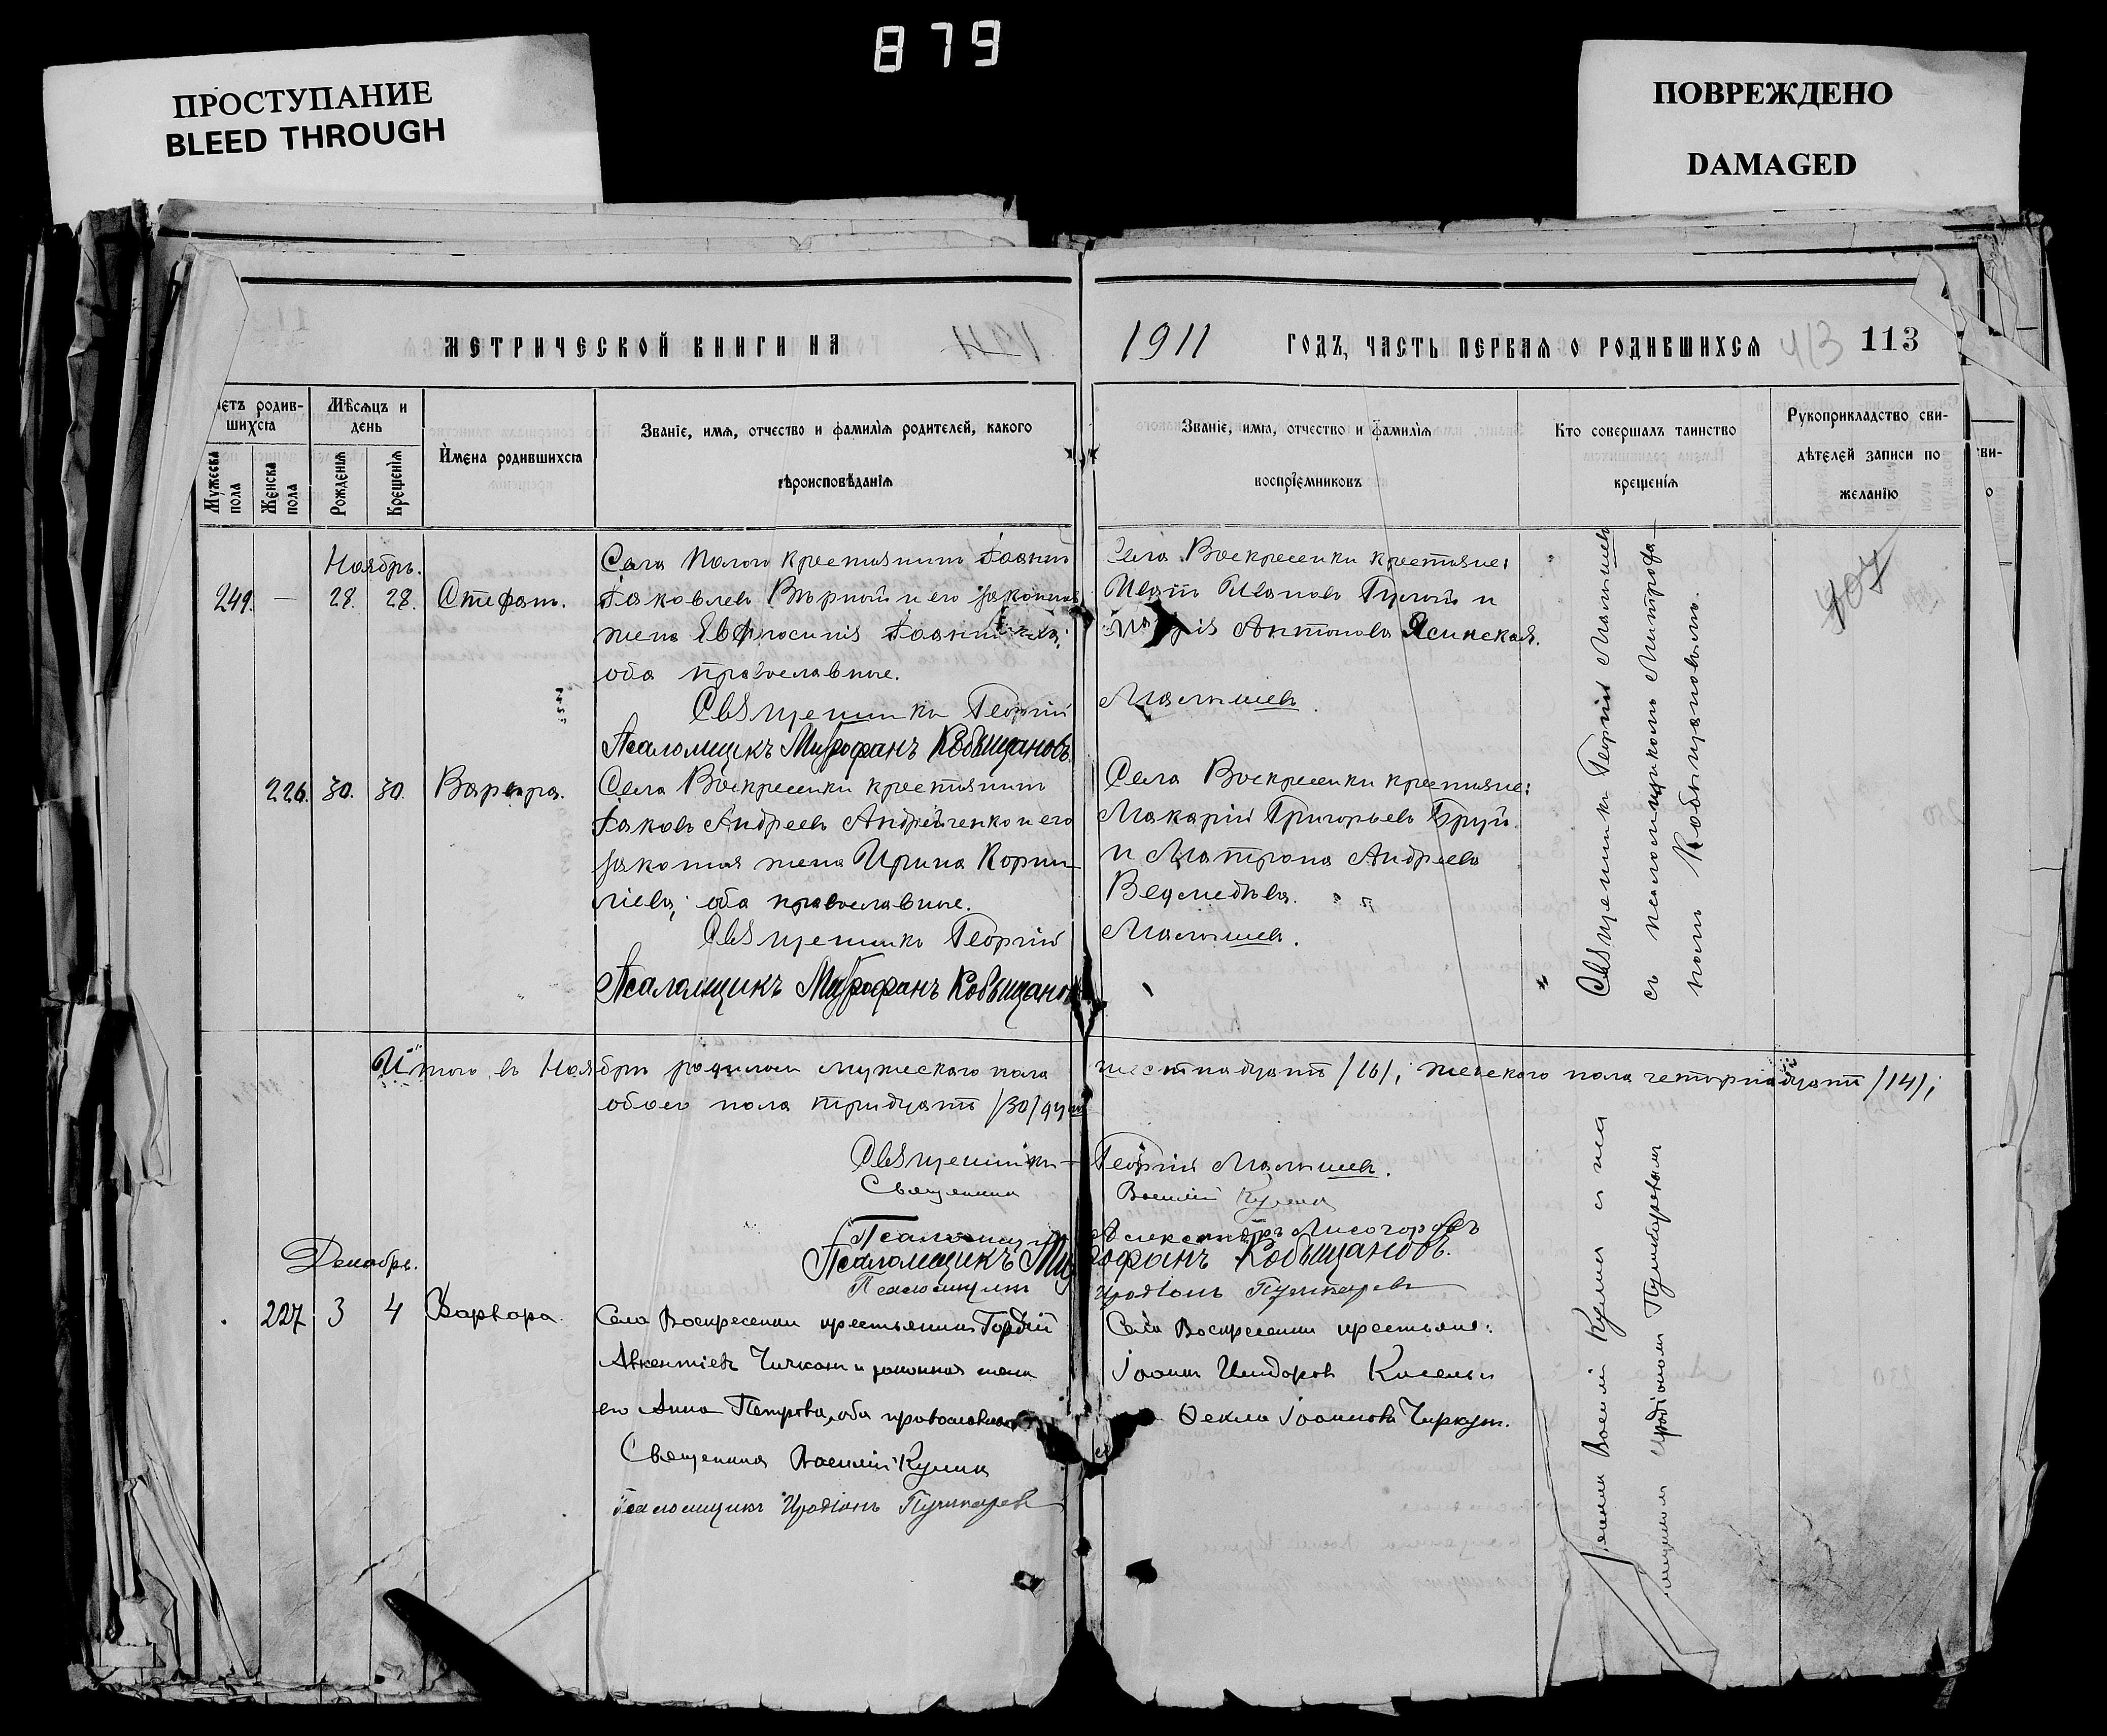 879
ПРОСТУПАНИЕ
BLEED THROUGH
ПОВРЕЖДЕНО
DAMAGED
МЕТРИЧЕСКОЙ КНИГИ НА
1911 ГОДЪ, ЧАСТЬ ПЕРВАЯ О РОДИВШИХСЯ 113
четъ родив-
шихся
Мѣсяцъ и
день
Мужеска
пола
Женска
пола
Рожденія
Крещенія
Имена родившихся
Званіе, имя, отчество и фамилія родителей, какого
вѣроисповѣданія
Званіе, имя, отчество и фамилія
воспріемниковъ
Кто совершалъ таинство
крещенія
Рукоприкладство сви-
дѣтелей записи по
желанію
Ноябрь.
249. — 28. 28. Стефанъ.
Села крестьянинъ Іоаннъ
Іаковлевъ Вѣрный и его законная
жена Евфросинія
оба православные.
Священникъ Георгій
Псаломщикъ Митрофанъ Кобыщановъ.
Села Воскресенки крестьяне:
Иванъ Ивановъ Гуглый и
Антонова Ясинская.
Малышевъ.
226. 30. 30. Варвара.
Села Воскресенки крестьянинъ
Іаковъ Андреевъ Андрейченко и его
законная жена Ирина Корни-
ліева; оба православные.
Священникъ Георгій
Псаломщикъ Митрофанъ Кобыщановъ
Села Воскресенки крестьяне:
Макарій Григорьевъ Бруй.
и Матрона Андреева
Ведмедева.
Малышевъ.
Священникъ Георгій Малышевъ
съ псаломщикомъ Митрофа-
номъ Кобыщановымъ.
407
Итого въ Ноябрѣ родилось мужескаго пола шестнадцать /16/; женскаго пола четырнадцать /14/;
обоего пола тридцать /30/ душъ
Священникъ Георгій Малышевъ.
Священникъ Василій
Псаломщикъ Александръ Лисогоровъ
Псаломщикъ Митрофанъ Кобыщановъ.
Псаломщикъ Иродіонъ Пушкаревъ
Декабрь.
227 3 4 Варвара.
Села Воскресенки крестьянинъ Гордій
Авкентіевъ и законная жена
его Анна Петрова, оба православные
Священникъ Василій
Псаломщикъ Иродіонъ Пушкаревъ
Села Воскресенки крестьяне:
Іоаннъ Исидоровъ Кисель и
Ѳекла Іоаннова
Василій
Иродіономъ Пушкаревымъ